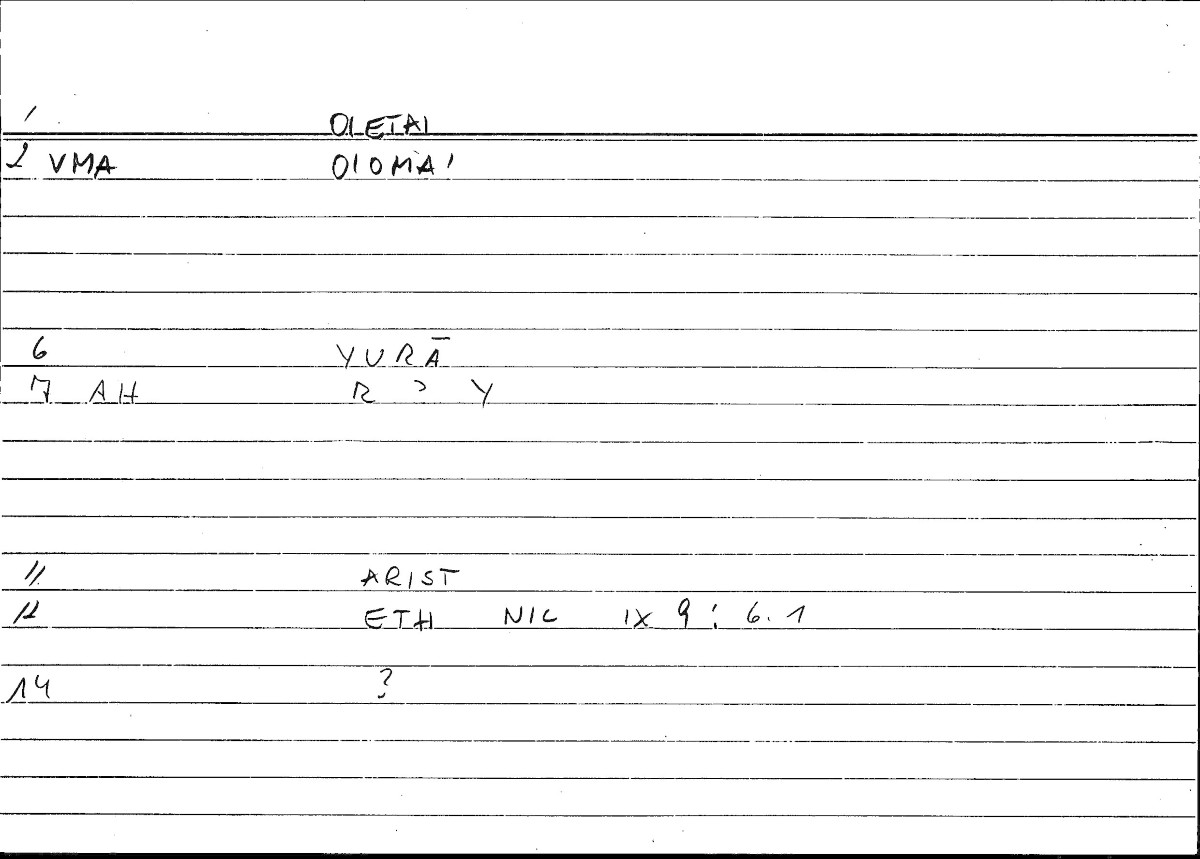 1 OIETAI
2 VMA OIOMAI
6 YURĀ
7 AH R ? Y
11 ARIST
12 ETH NIC IX 9 : 6.1
14 ?